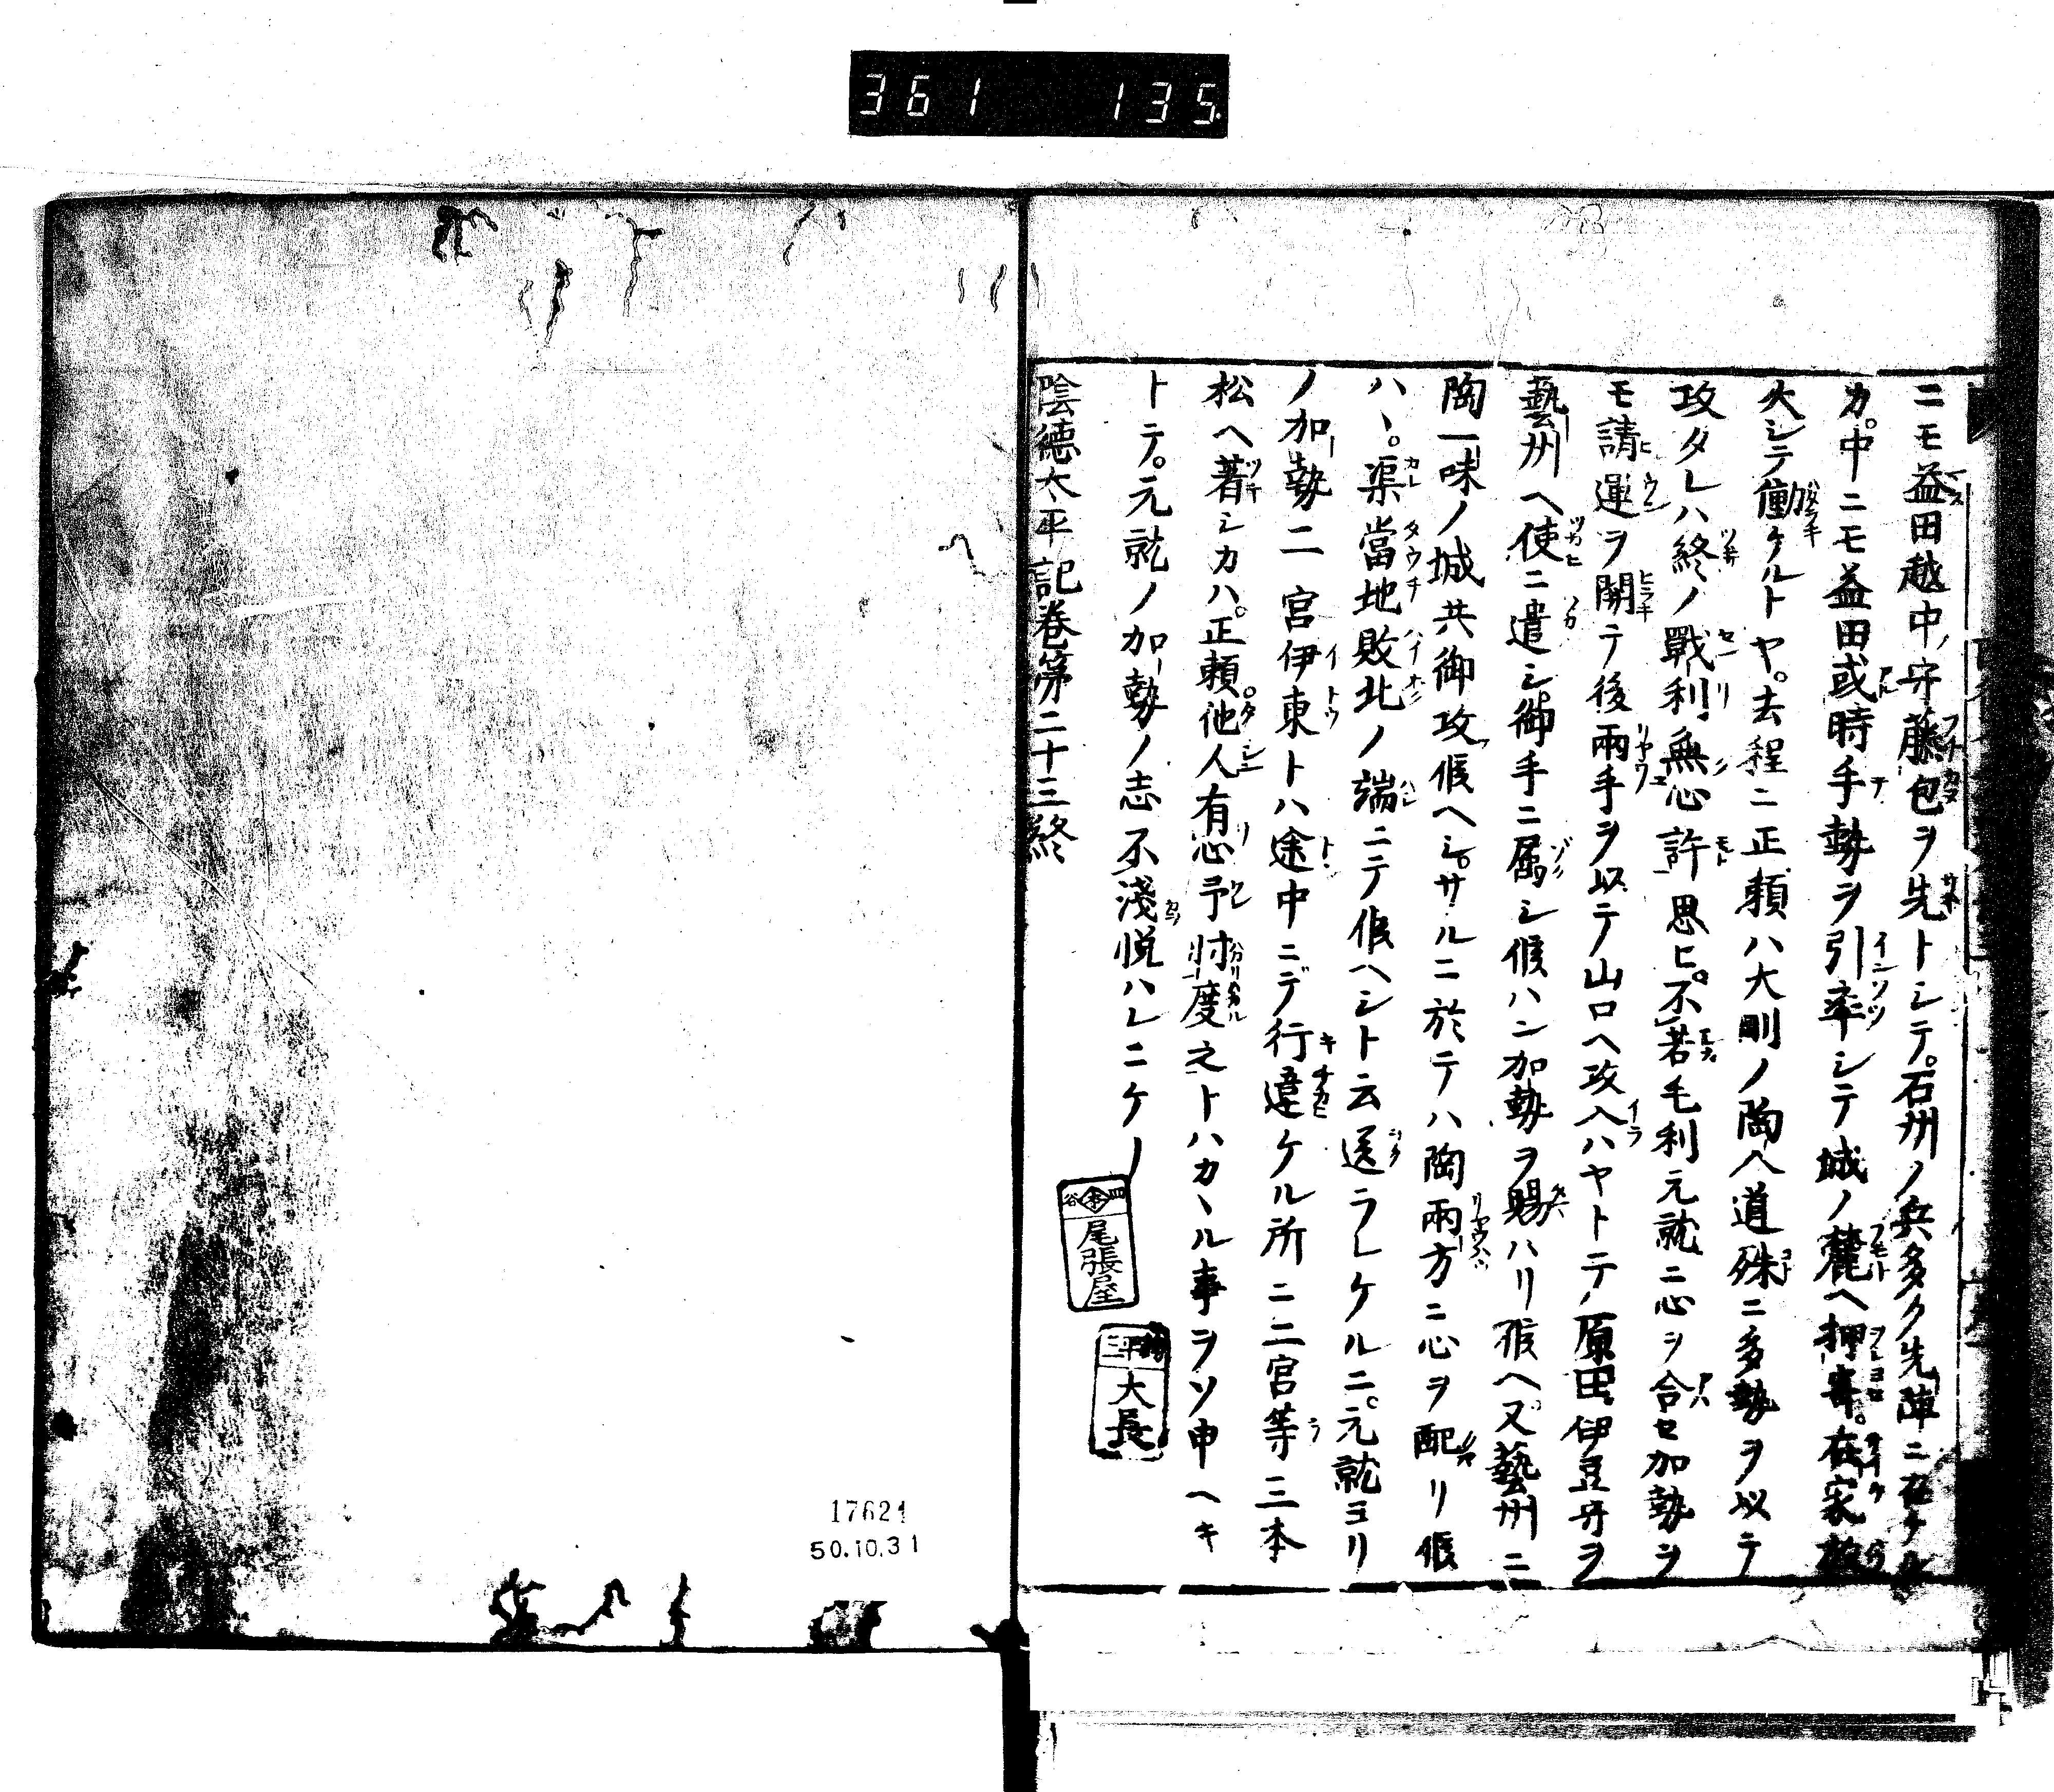 361 135
ニモ益田越中守藤包ヲ先トシテ。石州ノ兵多ク先陣ニ在ケル
カ。中ニモ益田或時手勢ヲ引率シテ城ノ麓ヘ押寄。在家放
火シテ働ケルトヤ。去程ニ正頼ハ大剛ノ陶入道殊ニ多勢ヲ以テ
攻タレハ終ノ戰利無心許思ヒ。不若毛利元就ニ心ヲ合セ加勢ヲ
モ請運ヲ開テ後兩手ヲ以テ山口ヘ攻入ハヤトテ原田伊豆守ヲ
藝州ヘ使ニ遣シ御手ニ属シ候ハン加勢ヲ賜ハリ候ヘ又藝州ニ
陶一味ノ城共御攻候ヘシ。サルニ於テハ陶兩方ニ心ヲ配リ候
ハヽ。渠當地敗北ノ端ニテ候ヘシト云送ラレケルニ。元就ヨリ
ノ加勢二宮伊東トハ途中ニテ行違ケル所ニ二宮等三本
松ヘ著シカハ。正頼他人有心予忖度之トハカヽル事ヲソ申ヘキ
トテ。元就ノ加勢ノ志不淺悦ハレニケリ
陰德太平記卷第二十三終
四谷
尾張屋
大長
17621
50.10.31